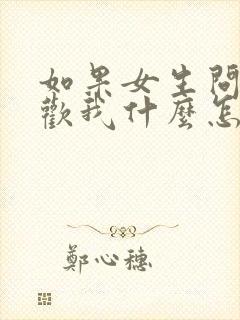 如果女生問
歡我什麼怎
鄭心穗